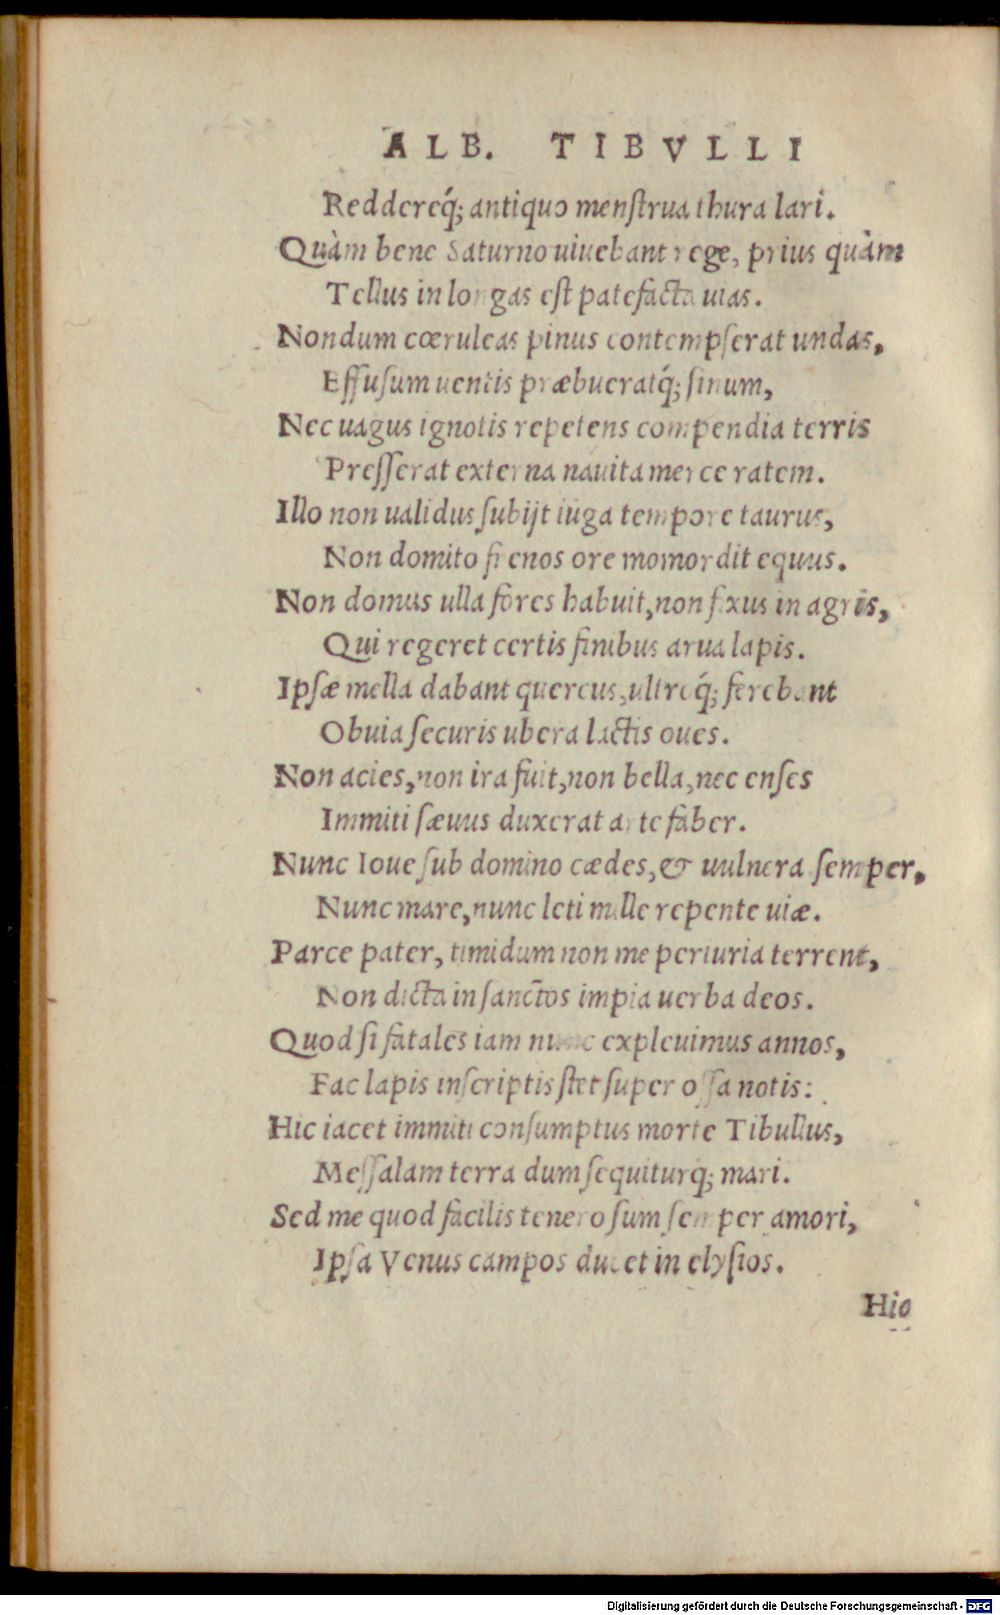 ALB. TIBVLLI
Reddereq́; antiquo menſtrua thura lari.
Quàm bene Saturno uiuebant rege, prius quàm
Tellus in longas eſt patefacta uias.
Nondum cœruleas pinus contempſerat undas,
Effuſum uentis præbueratq́; ſinum,
Nec uagus ignotis repetens compendia terris
Preſſerat externa nauita merce ratem.
Illo non ualidus ſubijt iuga tempore taurus,
Non domito frenos ore momordit equus.
Non domus ulla fores habuit, non fixus in agris,
Qui regeret certis finibus arua lapis.
Ipſæ mella dabant quercus, ultreq́; ferebant
Obuia ſecuris ubera lactis oues.
Non acies, non ira fuit, non bella, nec enſes
Immiti ſæuus duxerat arte faber.
Nunc Ioue ſub domino cædes, & uulnera ſemper,
Nunc mare, nunc leti mille repente uiæ.
Parce pater, timidum non me periuria terrent,
Non dicta in ſanctos impia uerba deos.
Quod ſi fatales iam nunc expleuimus annos,
Fac lapis inſcriptis ſtet ſuper oſſa notis:
Hic iacet immiti conſumptus morte Tibullus,
Meſſalam terra dum ſequiturq; mari.
Sed me quod facilis tenero ſum ſemper amori,
Ipſa Venus campos ducet in elyſios.
Hic
Digitalisierung gefördert durch die Deutsche Forschungsgemeinschaft - DFG